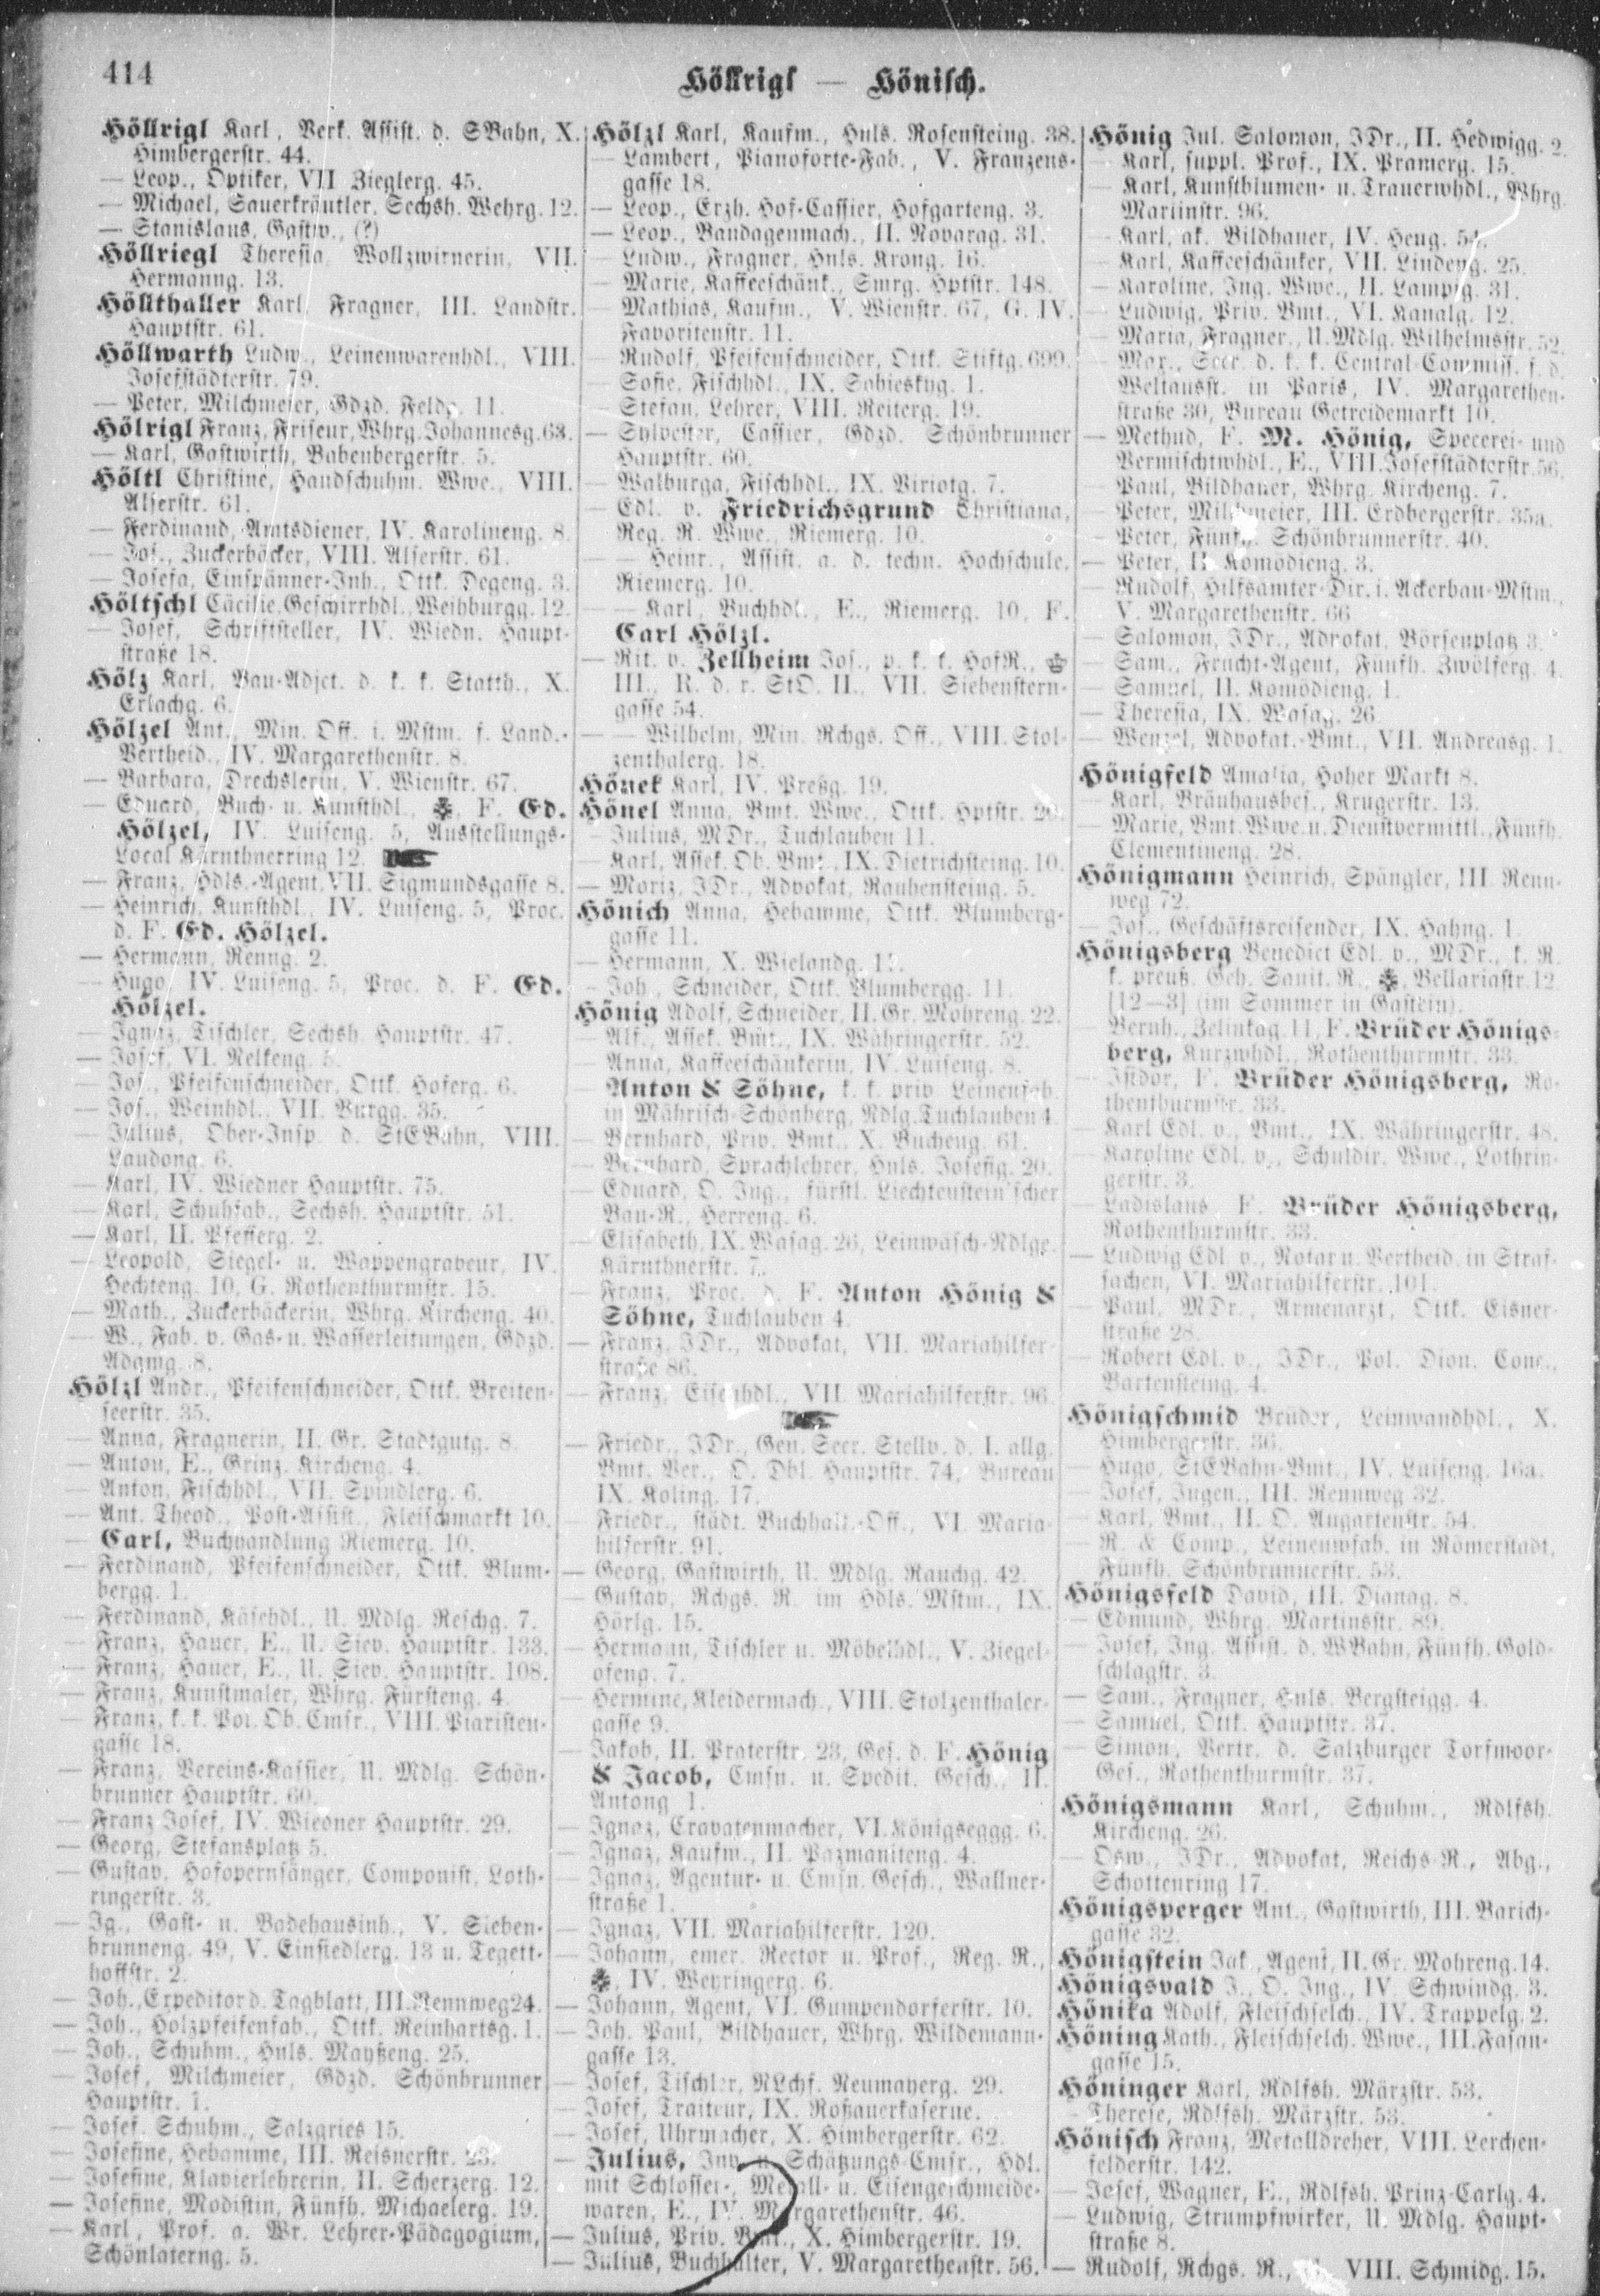 414
Höllrigl — Hönisch.
Höllrigl Karl, Verk. Assist. d. SBahn, X.
Himbergerstr. 44.
— Leop., Optiker, VII Zieglerg. 45.
— Michael, Sauerkräutler, Sechsh. Wehrg. 12.
— Stanislaus, Gastw., (?)
Höllriegl Theresia, Wollzwirnerin, VII.
Hermanng. 13.
Höllthaller Karl, Fragner, III. Landstr.
Hauptstr. 61.
Höllwarth Ludw., Leinenwarenhdl., VIII.
Josefstädterstr. 79.
— Peter, Milchmeier, Gdzd. Feldg. 11.
Hölrigl Franz, Friseur, Whrg. Johannesg. 63.
— Karl, Gastwirth, Babenbergerstr. 5.
Höltl Christine, Handschuhm. Wwe., VIII.
Alserstr. 61.
— Ferdinand, Amtsdiener, IV. Karolineng. 8.
— Jos., Zuckerbäcker, VIII. Alserstr. 61.
— Josefa, Einspänner-Inh., Ottk. Degeng. 3.
Höltschl Cäcilie, Geschirrhdl., Weihburgg. 12.
— Josef, Schriftsteller, IV. Wiedn. Haupt-
straße 18.
Hölz Karl, Bau-Adjct. d. k. k. Statth., X.
Erlachg. 6.
Hölzel Ant., Min. Off. i. Mstm. f. Land.-
Vertheid., IV. Margarethenstr. 8.
— Barbara, Drechslerin, V. Wienstr. 67.
— Eduard, Buch- u. Kunsthdl., F. Ed.
Hölzel, IV. Luiseng. 5, Ausstellungs-
Local Kärnthnerring 12.
— Franz, Hdls.-Agent, VII. Sigmundsgasse 8.
— Heinrich, Kunsthdl., IV. Luiseng. 5, Proc.
d. F. Ed. Hölzel.
— Hermann, Renng. 2.
— Hugo, IV. Luiseng. 5, Proc. d. F. Ed.
Hölzel.
— Ignaz, Tischler, Sechsh. Hauptstr. 47.
— Josef, VI. Nelkeng. 5.
— Jos., Pfeifenschneider, Ottk. Hoferg. 6.
— Jos., Weinhdl., VII. Burgg. 35.
— Julius, Ober-Insp. d. StEBahn, VIII.
Laudong. 6.
— Karl, IV. Wiedner Hauptstr. 75.
— Karl, Schuhfab., Sechsh. Hauptstr. 51.
— Karl, II. Pfefferg. 2.
— Leopold, Siegel- u. Wappengraveur, IV.
Hechteng. 10, G. Rothenthurmstr. 15.
— Math., Zuckerbäckerin, Whrg. Kircheng. 40.
— W., Fab. v. Gas- u. Wasserleitungen, Gdzd.
Adamg. 8.
Hölzl Andr., Pfeifenschneider, Ottk. Breiten-
seerstr. 35.
— Anna, Fragnerin, II. Gr. Stadtgutg. 8.
— Anton, E., Grinz. Kircheng. 4.
— Anton, Fischhdl., VII. Spindlerg. 6.
— Ant. Theod., Post-Assist., Fleischmarkt 10.
— Carl, Buchhandlung Riemerg. 10.
— Ferdinand, Pfeifenschneider, Ottk. Blum-
bergg. 1.
— Ferdinand, Käsehdl., U. Mdlg. Reschg. 7.
— Franz, Hauer, E., U. Siev. Hauptstr. 133.
— Franz, Hauer, E., U. Siev. Hauptstr. 108.
— Franz, Kunstmaler, Whrg. Fürsteng. 4.
— Franz, k. k. Pol. Ob. Cmsr., VIII. Piaristen-
gasse 18.
— Franz, Vereins-Kassier, U. Mdlg. Schön-
brunner Hauptstr. 60.
— Franz Josef, IV. Wiedner Hauptstr. 29.
— Georg, Stefansplatz 5.
— Gustav, Hofopernsänger, Componist, Loth-
ringerstr. 3.
— Ig., Gast- u. Badehausinh., V. Sieben-
brunneng. 49, V. Einsiedlerg. 13 u. Tegett-
hoffstr. 2.
— Joh., Expeditor d. Tagblatt, III. Rennweg 24.
— Joh., Holzpfeifenfab., Ottk. Reinhartsg. 1.
— Joh., Schuhm., Hnls. Mayßeng. 25.
— Josef, Milchmeier, Gdzd. Schönbrunner
Hauptstr. 1.
— Josef, Schuhm., Salzgries 15.
— Josefine, Hebamme, III. Reisnerstr. 23.
— Josefine, Klavierlehrerin, II. Scherzerg. 12.
— Josefine, Modistin, Fünfh. Michaelerg. 19.
— Karl, Prof. a. Wr. Lehrer-Pädagogium,
Schönlaterng. 5.
Hölzl Karl, Kaufm., Hnls. Rosensteing. 38.
— Lambert, Pianoforte-Fab., V. Franzens-
gasse 18.
— Leop., Erzh. Hof-Cassier, Hofgarteng. 3.
— Leop., Bandagenmach., II. Novarag. 31.
— Ludw., Fragner, Hnls. Krong. 16.
— Marie, Kaffeeschänk., Smrg. Hptstr. 148.
— Mathias, Kaufm., V. Wienstr. 67, G. IV.
Favoritenstr. 11.
— Rudolf, Pfeifenschneider, Ottk. Stiftg. 699.
— Sofie, Fischhdl., IX. Sobieskyg. 1.
— Stefan, Lehrer, VIII. Reiterg. 19.
— Sylvester, Cassier, Gdzd. Schönbrunner
Hauptstr. 60.
— Walburga, Fischhdl., IX. Viriotg. 7.
— Edl. v. Friedrichsgrund Christiana,
Reg. R. Wwe., Riemerg. 10.
— — Heinr., Assist. a. d. techn. Hochschule,
Riemerg. 10.
— — Karl, Buchhdl., E., Riemerg. 10, F.
Carl Hölzl.
— Rit. v. Zellheim Jos., p. k. k. HofR.,
III., R. d. r. StO. II., VII. Siebenstern-
gasse 54.
— — Wilhelm, Min. Rchgs. Off., VIII. Stol-
zenthalerg. 18.
Hönek Karl, IV. Preßg. 19.
Hönel Anna, Bmt. Wwe., Ottk. Hptstr. 20.
— Julius, MDr., Tuchlauben 11.
— Karl, Assek. Ob. Bmt., IX. Dietrichsteing. 10.
— Moriz, JDr., Advokat, Rauhensteing. 5.
Hönich Anna, Hebamme, Ottk. Blumberg-
gasse 11.
— Hermann, X. Wielandg.
— Joh., Schneider, Ottk. Blumbergg. 11.
Hönig Adolf, Schneider, II. Gr. Mohreng. 22.
— Alf., Assek. Bmt., IX. Währingerstr. 52.
— Anna, Kaffeeschänkerin, IV. Luiseng. 8.
— Anton & Söhne, k. k. priv. Leinenfab.
in Mährisch-Schönberg, Ndlg. Tuchlauben 4.
— Bernhard, Priv. Bmt., X. Bucheng. 61.
— Bernhard, Sprachlehrer, Hnls. Josefig. 20.
— Eduard, O. Ing., fürstl. Liechtenstein'scher
Bau-R., Herreng. 6.
— Elisabeth, IX. Wasag. 26, Leinwäsch-Ndlge.
Kärnthnerstr. 7.
— Franz, Proc. d. F. Anton Hönig &
Söhne, Tuchlauben 4.
— Franz, JDr., Advokat, VII. Mariahilfer-
straße 86.
— Franz, Eisenhdl., VII. Mariahilferstr. 96.
— Friedr., JDr., Gen. Secr. Stellv. d. I. allg.
Bmt. Ver., O. Dbl. Hauptstr. 74, Bureau
IX. Koling. 17.
— Friedr., städt. Buchhalt.-Off., VI. Maria-
hilferstr. 91.
— Georg, Gastwirth, U. Mdlg. Rauchg. 42.
— Gustav, Rchgs. R. im Hdls. Mstm., IX.
Hörlg. 15.
— Hermann, Tischler u. Möbelhdl., V. Ziegel-
ofeng. 7.
— Hermine, Kleidermach., VIII. Stolzenthaler-
gasse 9.
— Jakob, II. Praterstr. 23, Ges. d. F. Hönig
& Jacob, Cmsn. u. Spedit. Gesch., II.
Antong 1.
— Ignaz, Cravatenmacher, VI. Königseggg. 6.
— Ignaz, Kaufm., II. Pazmaniteng. 4.
— Ignaz, Agentur- u. Cmsn. Gesch., Wallner-
straße 1.
— Ignaz, VII. Mariahilferstr. 120.
— Johann, emer. Rector u. Prof., Reg. R.,
IV. Weyringerg. 6.
— Johann, Agent, VI. Gumpendorferstr. 10.
— Joh. Paul, Bildhauer, Whrg. Wildemann-
gasse 13.
— Josef, Tischler, NLchf. Neumayerg. 29.
— Josef, Traiteur, IX. Roßauerkaserne.
— Josef, Uhrmacher, X. Himbergerstr. 62.
— Julius, Inv. u. Schätzungs-Cmsr., Hdl.
mit Schlosser-, Metall- u. Eisengeschmeide-
waren, E., IV. Margarethenstr. 46.
— Julius, Priv. Bmt., X. Himbergerstr. 19.
— Julius, Buchhalter, V. Margarethenstr. 56.
Hönig Jul. Salomon, JDr., II. Hedwigg. 2.
— Karl, suppl. Prof., IX. Pramerg. 15.
— Karl, Kunstblumen- u. Trauerwhdl., Whrg.
Martinstr. 96.
— Karl, ak. Bildhauer, IV. Heug. 54.
— Karl, Kaffeeschänker, VII. Lindeng. 25.
— Karoline, Ing. Wwe., II. Lampig. 31.
— Ludwig, Priv. Bmt., VI. Kanalg. 12.
— Maria, Fragner., U. Mdlg. Wilhelmsstr. 52.
— Max, Secr. d. k. k. Central-Commiss. f. d.
Weltausst. in Paris, IV. Margarethen-
straße 30, Bureau Getreidemarkt 10.
— Methud, F. M. Hönig, Specerei- und
Vermischtwhdl., E., VIII. Josefstädterstr. 56.
— Paul, Bildhauer, Whrg. Kircheng. 7.
— Peter, Milchmeier, III. Erdbergerstr. 35a.
— Peter, Fünfh. Schönbrunnerstr. 40.
— Peter, II. Komödieng. 3.
— Rudolf, Hilfsämter-Dir. i. Ackerbau-Mstm.,
V. Margarethenstr. 66
— Salomon, JDr., Advokat, Börsenplatz 3.
— Sam., Frucht-Agent, Fünfh. Zwölferg. 4.
— Samuel, II. Komödieng. 1.
— Theresia, IX. Wasag. 26
— Wenzel, Advokat.-Bmt., VII. Andreasg. 1.
Hönigfeld Amalia, Hoher Markt 8.
— Karl, Bräuhausbes., Krugerstr. 13.
— Marie, Bmt. Wwe. u. Dienstvermittl., Fünfh.
Clementineng. 28.
Hönigmann Heinrich, Spängler, III. Renn-
weg 72.
— Jos., Geschäftsreisender, IX. Hahng. 1.
Hönigsberg Benedict Edl. v., MDr., k. R.
k. preuß. Geh. Sanit. R., Bellariastr. 12.
[12—3] (im Sommer in Gastein).
— Bernh., Zelinkag. 11, F. Brüder Hönigs-
berg, Kurzwhdl., Rothenthurmstr. 33.
— Isidor, F. Brüder Hönigsberg, Ro-
thenthurmstr. 33.
— Karl Edl. v., Bmt., IX. Währingerstr. 48.
— Karoline Edl. v., Schuldir. Wwe., Lothrin-
gerstr. 3.
— Ladislaus, F. Brüder Hönigsberg,
Rothenthurmstr. 33.
— Ludwig Edl. v., Notar u. Vertheid. in Straf-
sachen, VI. Mariahilferstr. 101.
— Paul, MDr., Armenarzt, Ottk. Eisner-
straße 28.
— Robert Edl. v., JDr., Pol. Dion. Conc.,
Bartensteing. 4.
Hönigschmid Brüder, Leinwandhdl., X.
Himbergerstr. 36.
— Hugo, StEBahn-Bmt., IV. Luiseng. 16a.
— Josef, Ingen., III. Rennweg 32.
— Karl, Bmt., II. O. Augartenstr. 54.
— R. & Comp., Leinenwfab. in Römerstadt,
Fünfh. Schönbrunnerstr. 53.
Hönigsfeld David, III. Dianag. 8.
— Edmund, Whrg. Martinsstr. 89.
— Josef, Ing. Assist. d. WBahn, Fünfh. Gold-
schlagstr. 3.
— Sam., Fragner, Hnls. Bergsteigg. 4.
— Samuel, Ottk. Hauptstr. 37.
— Simon, Vertr. d. Salzburger Torfmoor-
Ges., Rothenthurmstr. 37.
Hönigsmann Karl, Schuhm., Rdlfsh.
Kircheng. 26.
— Osw., JDr., Advokat, Reichs-R., Abg.,
Schottenring 17.
Hönigsperger Ant., Gastwirth, III. Barich-
gasse 32.
Hönigstein Jak., Agent, II. Gr. Mohreng. 14.
Hönigsvald J., O. Ing., IV. Schwindg. 3.
Hönika Adolf, Fleischselch., IV. Trappelg. 2.
Höning Kath., Fleischselch. Wwe., III. Fasan-
gasse 15.
Höninger Karl, Rdlfsh. Märzstr. 53.
— Therese, Rdlfsh. Märzstr. 53.
Hönisch Franz, Metalldreher, VIII. Lerchen-
felderstr. 142.
— Josef, Wagner, E., Rdlfsh. Prinz-Carlg. 4.
— Ludwig, Strumpfwirker, U. Mdlg. Haupt-
straße 8.
— Rudolf, Rchgs. R., VIII. Schmidg. 15.